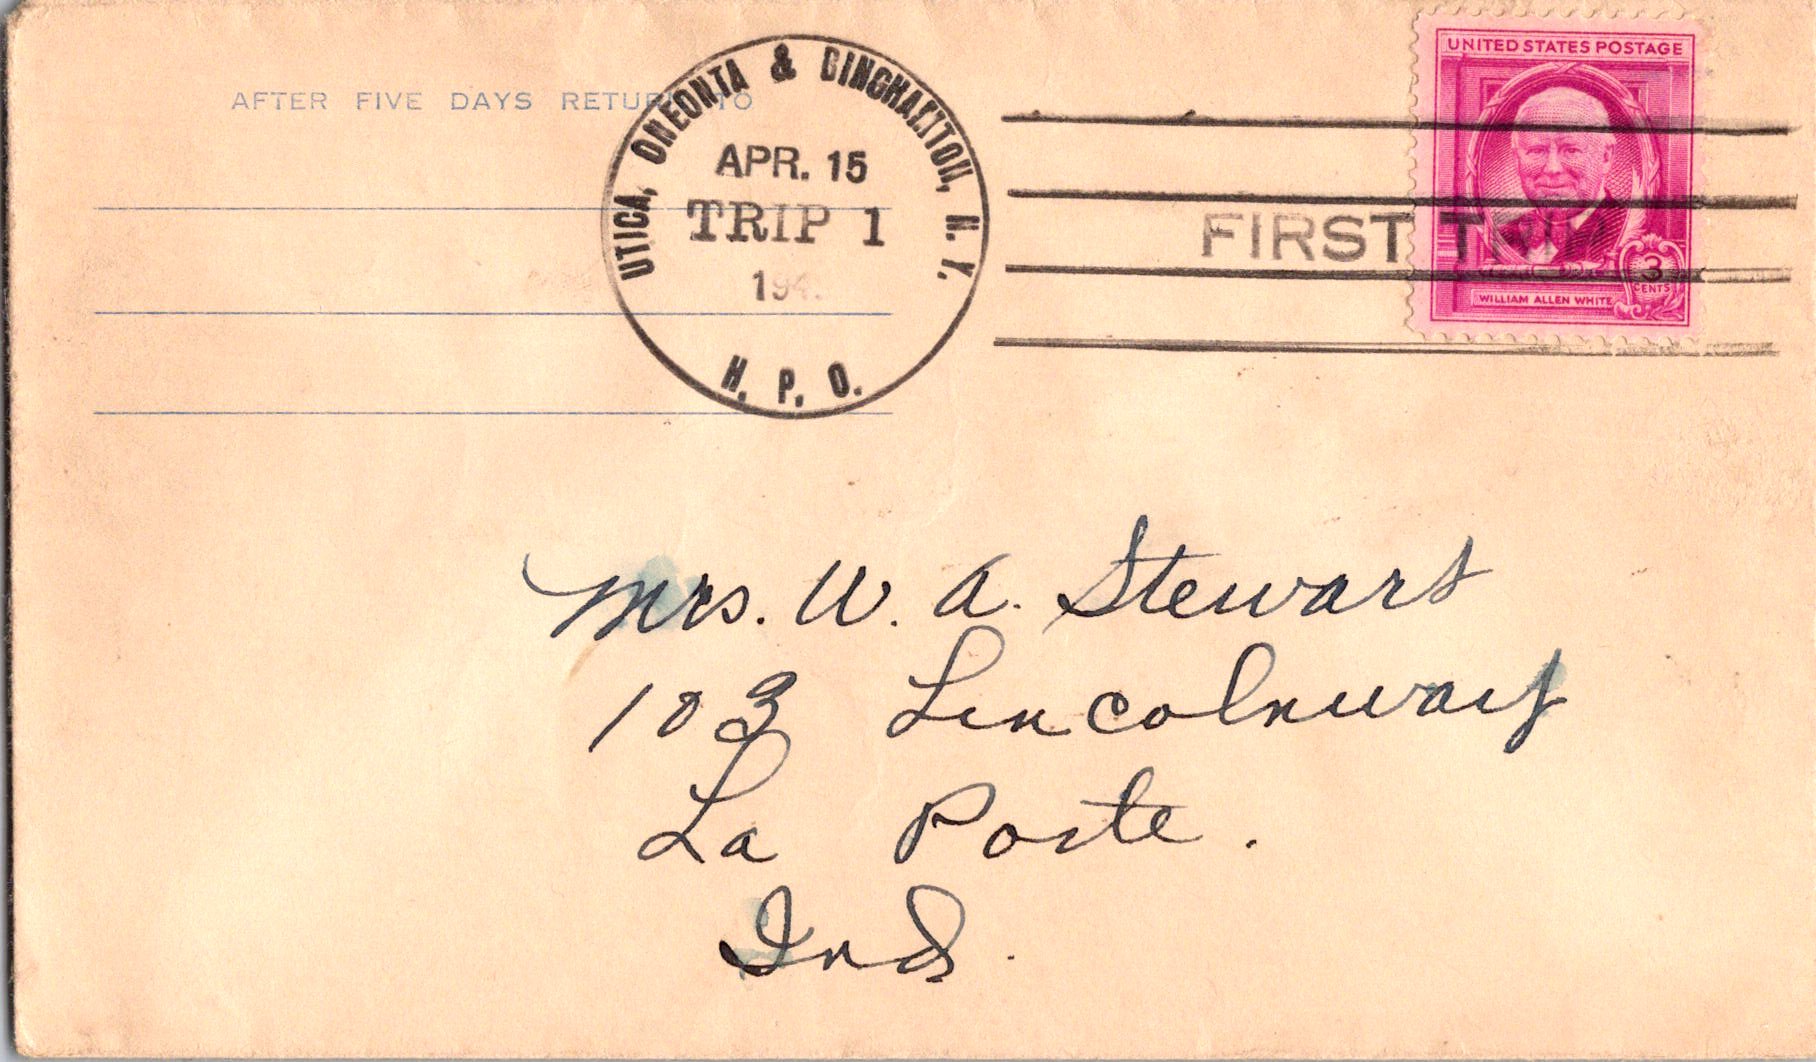 UNITED STATES POSTAGE
AFTER FIVE DAYS RETURN TO
UTICA, ONEONTA & BINGHAMTON, N. Y.
APR. 15
TRIP 1
H. P. O.
FIRST TRIP
3
CENTS
WILLIAM ALLEN WHITE
Mrs. W. A. Stewart
103 Lincolnway
La Porte.
Ind.